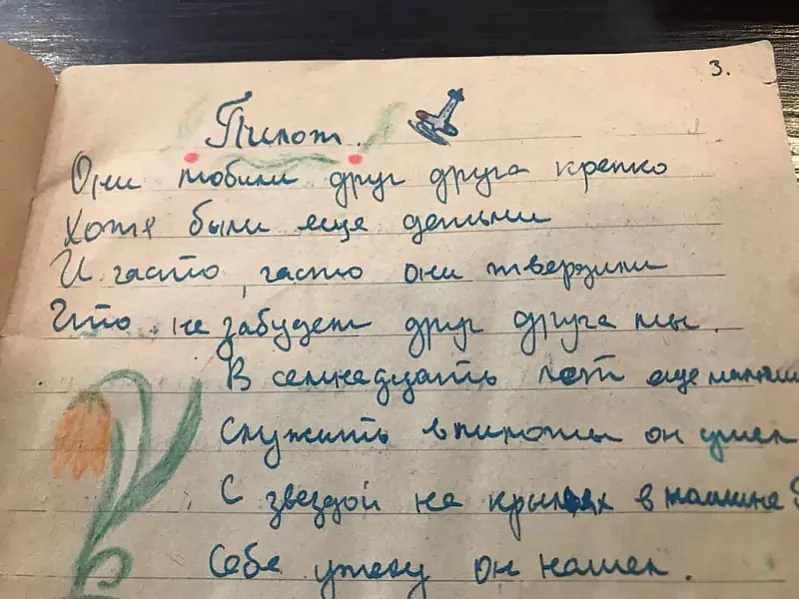 3.
Пилот.
Они любили друг друга крепко
Хотя были еще детьми
И часто, часто они твердили
Что не забудем друг друга мы.
В семнадцать лет еще мальчиш
Служить в пилоты он ушел
С звездой на крыльях в машине
Себе утеху он нашел.